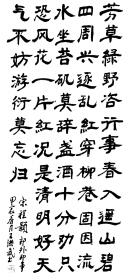 芳草緑野恣行事春入遥山碧
四周兴逐乱红穿柳巷固因流
水坐苔矶莫辞盏酒十分劝只
恐风花一片红况是清明好天
气不妨游衍莫忘归
宋程颢郊行即事